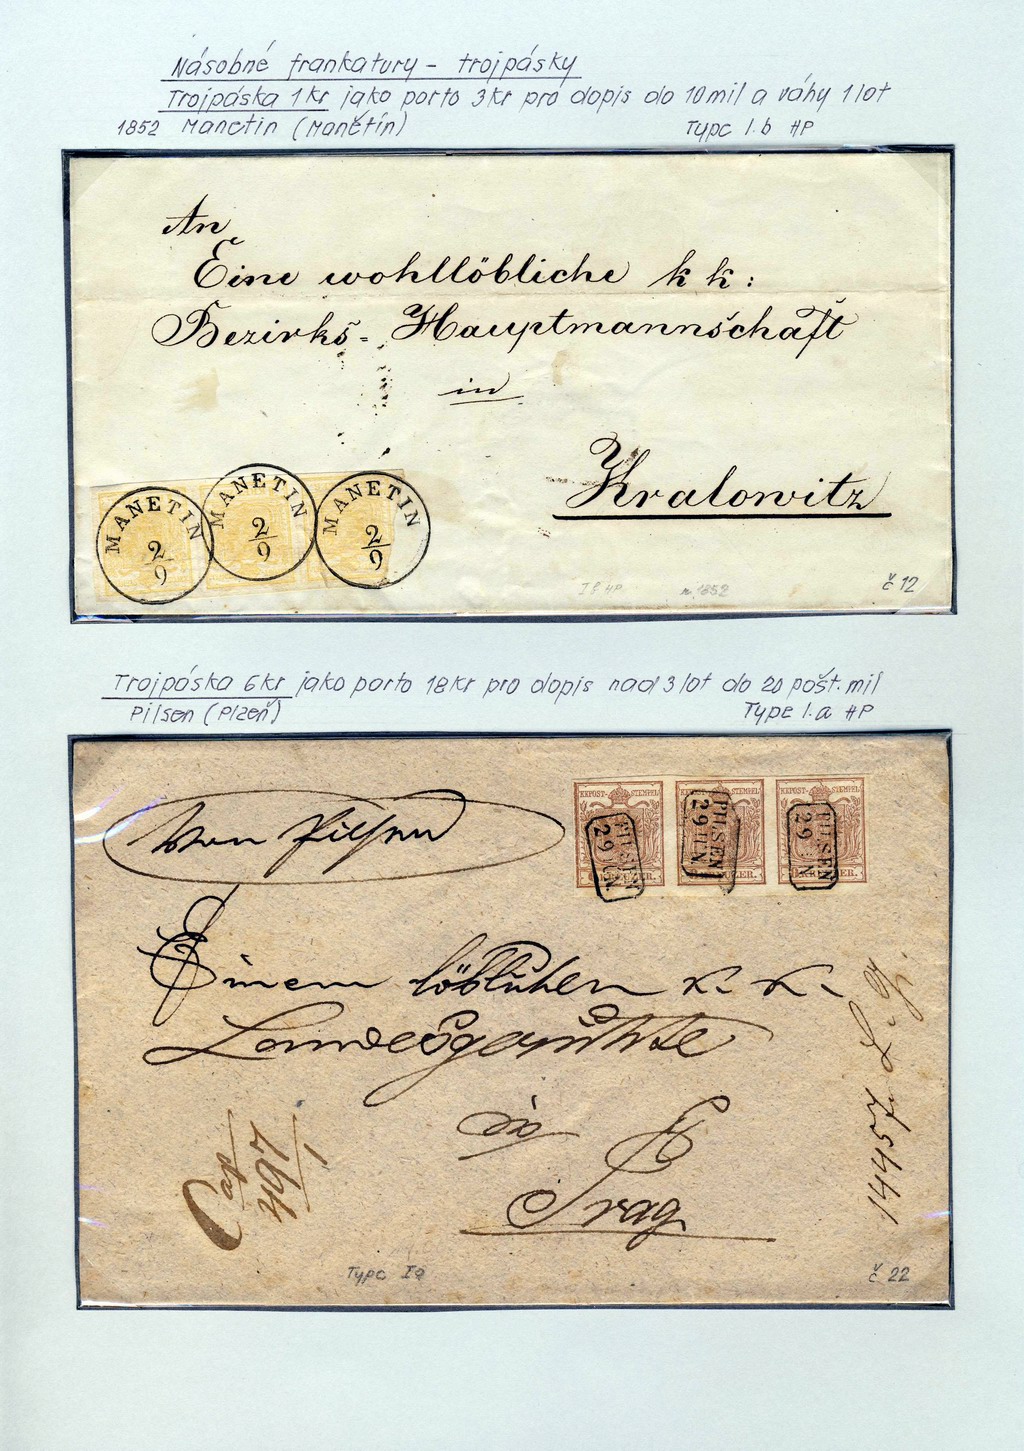 Násobné frankatury – trojpásky
Trojpáska 1kr jako porto 3kr pro dopis do 10mil a váhy 1lot
1852 Manetin (Manětín) Type I.b HP
An
Eine wohllöbliche k k:
Bezirks-Hauptmannschaft
in
Kralowitz
MANETIN 2/9
MANETIN 2/9
MANETIN 2/9
HP 1852 č 12
Trojpáska 6kr jako porto 18kr pro dopis nad 3lot do 20 pošt. mil
Pilsen (Plzeň) Type I.a HP
KKPOST-STEMPEL KKPOST-STEMPEL KKPOST-STEMPEL
PILSEN 29 JUN
PILSEN 29 JUN
PILSEN 29 JUN
KREUZER.
Von Pilsen
Einem löblichen k. k.
Landesgerichte
in
Prag
14457
Type Ia č 22